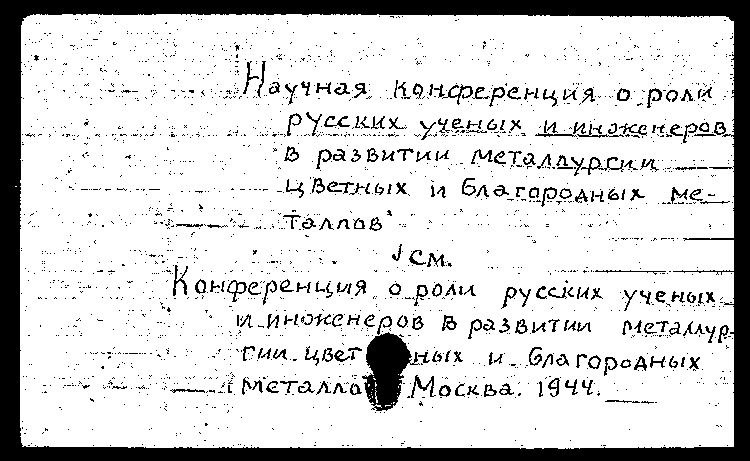 Научная конференция о роли
русских ученых и инженеров
в развитии металлургии
цветных и благородных ме-
таллов
см.
Конференция о роли русских ученых
и инженеров в развитии металлур-
гии цвет ных и благородных
металло Москва. 1944.